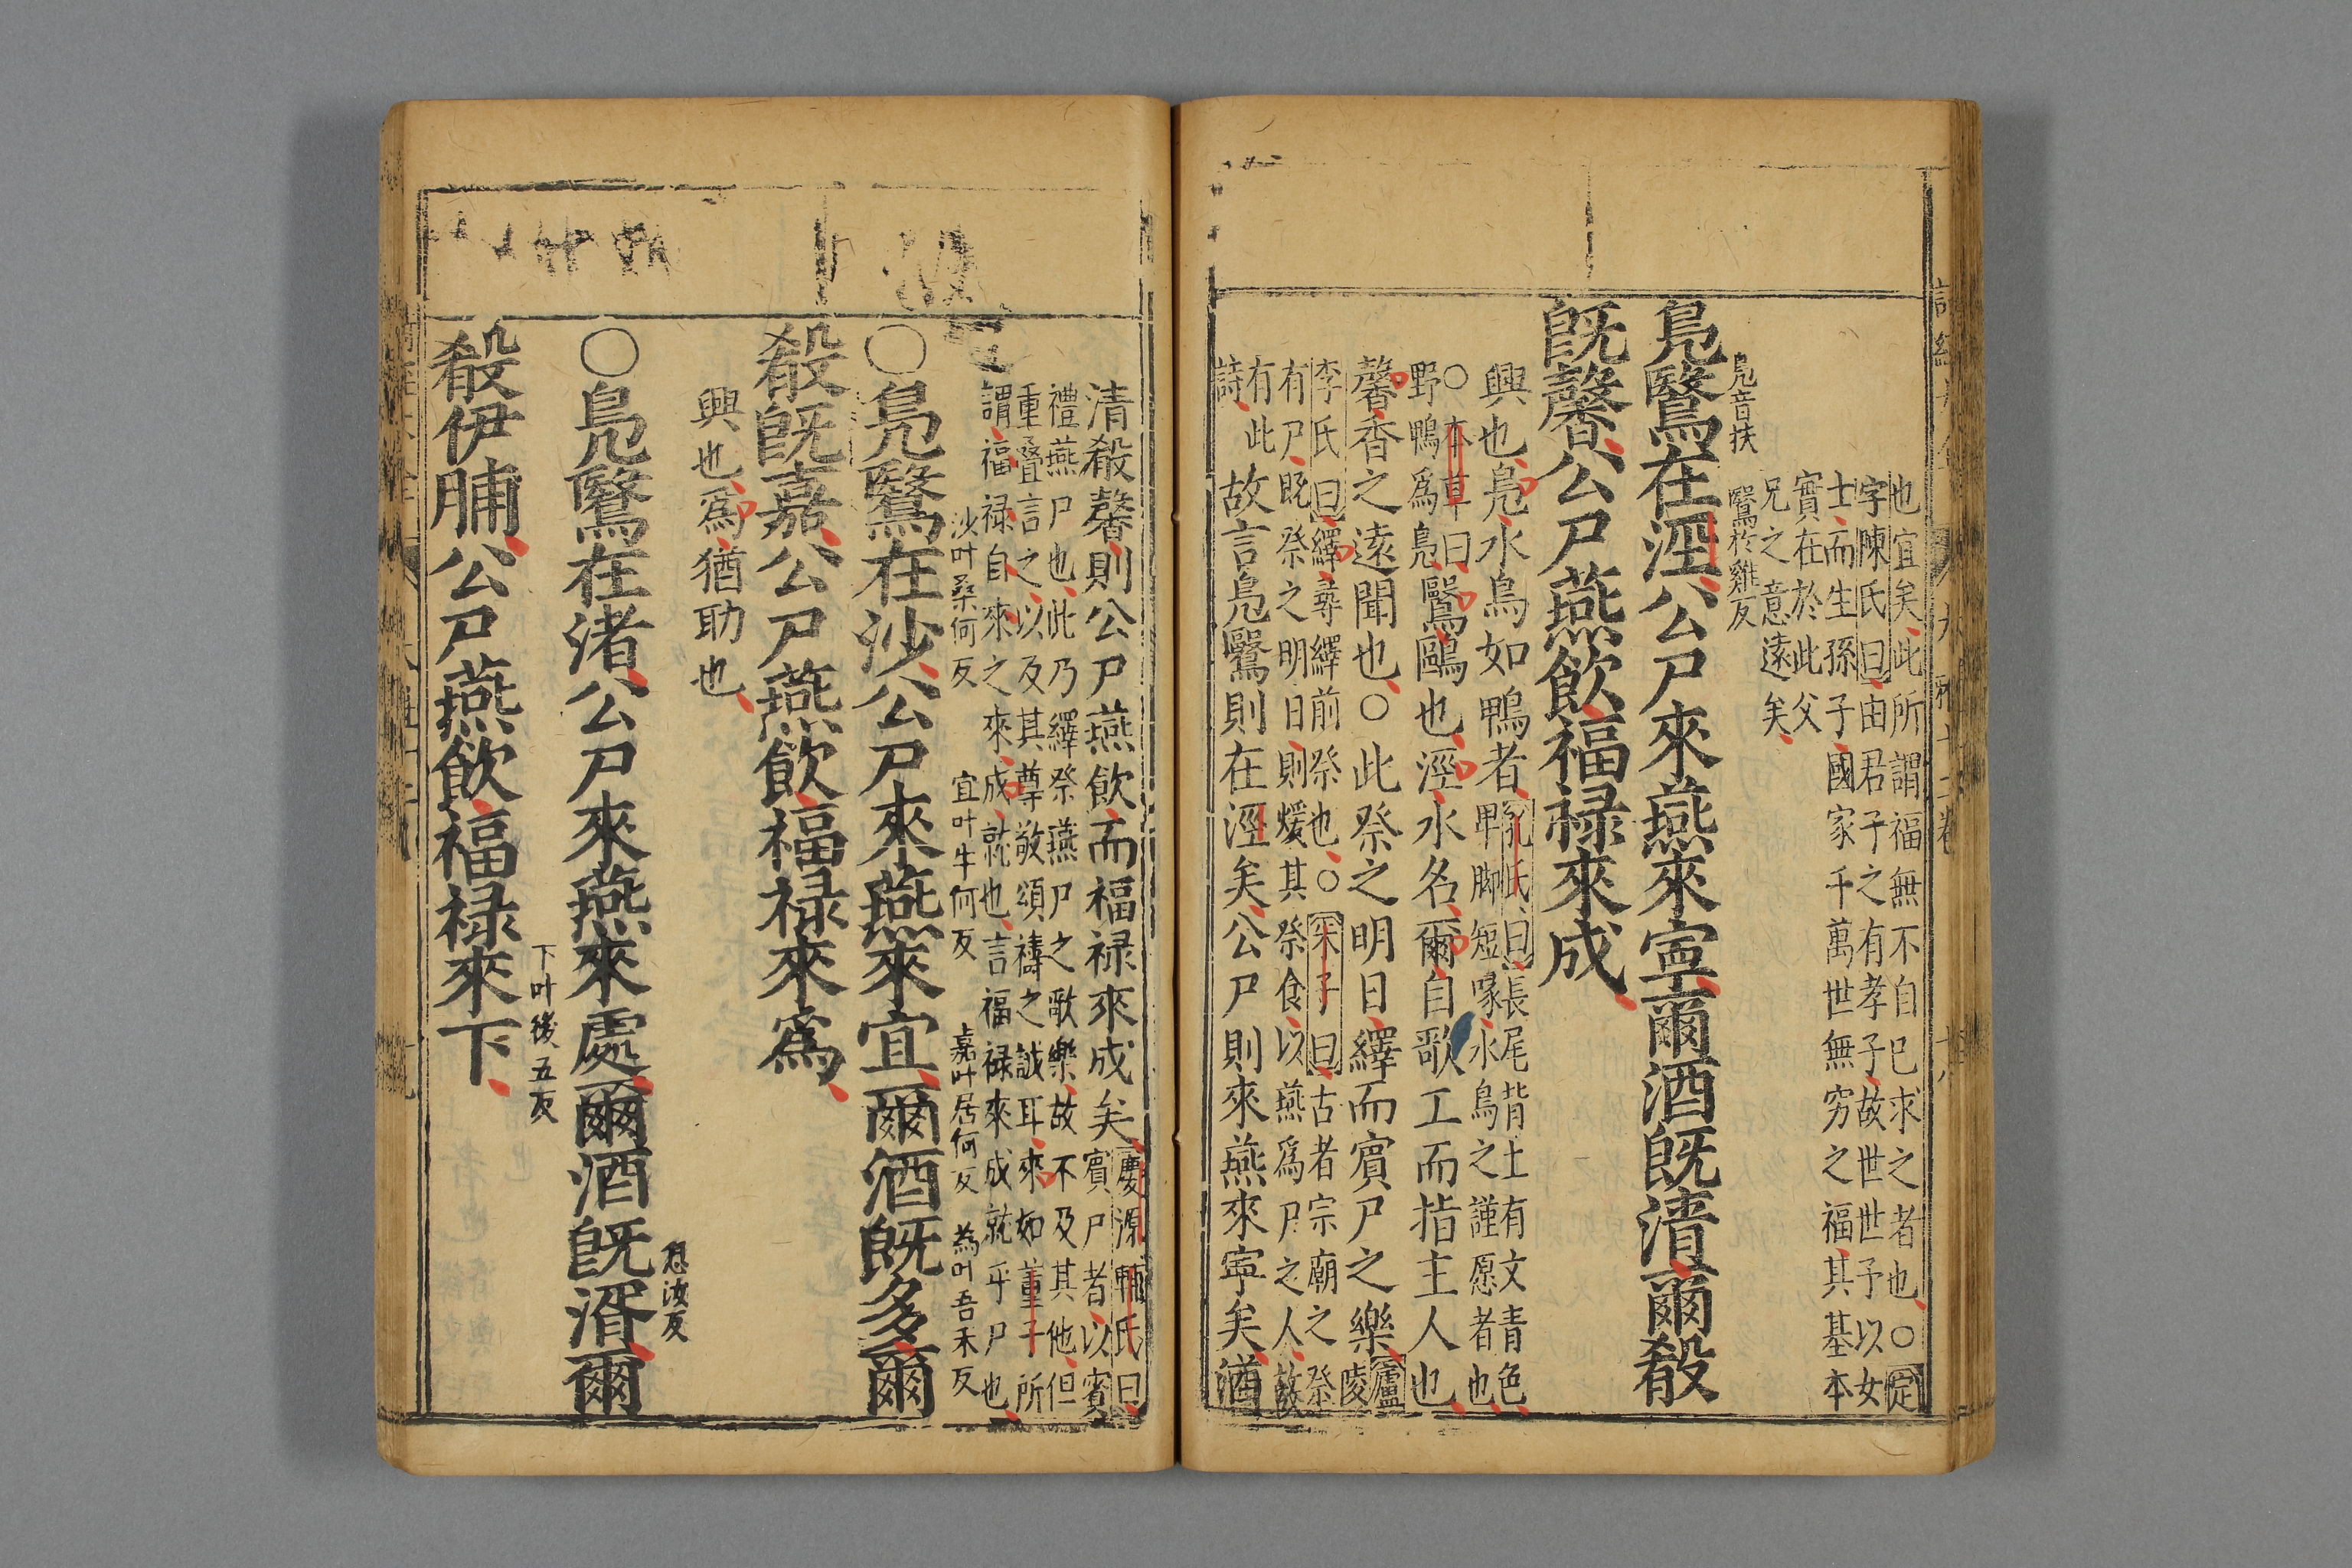 也宜矣此所謂福無不自已求之者也○定
宇陳氏曰由君子之有孝子故世世予以女
士而生孫子國家千萬世無穷之福其基本
實在於此父
兄之意遠矣
鳧音扶
鷖於雞反
鳧鷖在涇公尸來燕來寧爾酒既清爾殽
既馨公尸燕飲福禄來成
興也鳧水鳥如鴨者
孔氏曰長尾背上有文青色
卑脚短喙水鳥之謹愿者也
○本草曰
野鴨爲鳧
鷖鷗也涇水名爾自歌工而指主人也
馨香之遠聞也○此祭之明日繹而賓尸之樂
廬
陵
李氏曰繹尋繹前祭也○朱子曰古者宗廟之祭
有尸既祭之明日則煖其祭食以燕爲尸之人故
有此
詩
故言鳧鷖則在涇矣公尸則來燕來寧矣酒
清殽馨則公尸燕飲而福禄來成矣
慶源輔氏曰
賓尸者以賓
禮燕尸也此乃繹祭燕尸之歌樂故不及其他但
重叠言之以及其尊敬頌禱之誠耳來如董子所
謂福禄自來之來成就也言福禄來成就乎尸也
沙叶桑何反
宜叶牛何反
嘉叶居何反
為叶吾禾反
○鳧鷖在沙公尸來燕來宜爾酒既多爾
殽既嘉公尸燕飲福禄來爲
興也爲猶助也
○鳧鷖在渚公尸來燕來處爾酒既湑爾
下叶後五反
殽伊脯公尸燕飲福禄來下